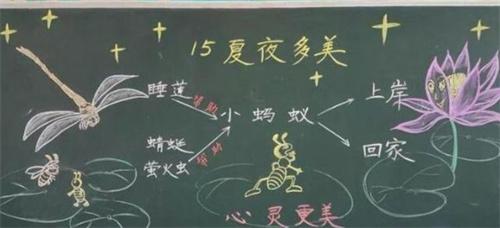 15夏夜多美
睡莲 帮助 小蚂蚁 上岸
蜻蜓
萤火虫 帮助 回家
心灵更美